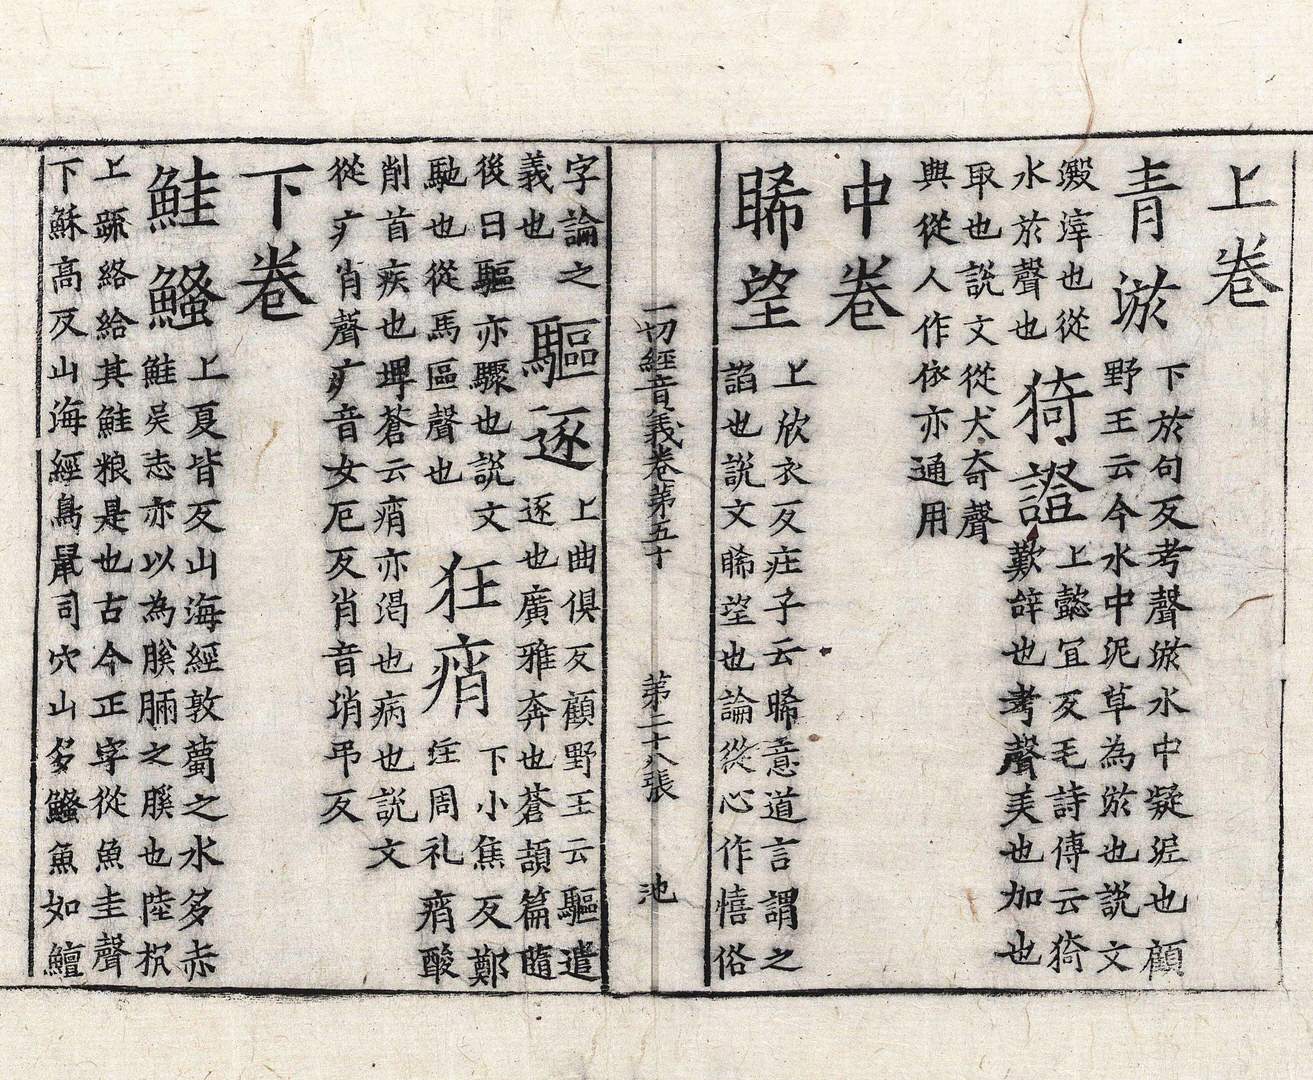 上卷
青淤 下於句反考聲淤水中凝泥也顧
野王云今水中泥草為淤也說文
澱滓也從
水於聲也
猗證 上懿宜反毛詩傳云猗
歎辝也考聲美也加也
取也說文從犬奇聲
與從人作依亦通用
中卷
睎望 上欣衣反庄子云睎意道言謂之
諂也說文睎望也論從心作悕俗
一切經音義卷第五十 第二十八張 池
字論之
義也
驅逐 上曲俱反顧野王云驅遣
逐也廣雅奔也蒼頡篇隨
後曰驅亦驟也說文
馳也從馬區聲也
狂痟 下小焦反鄭
注周礼痟酸
削首疾也埤蒼云痟亦渴也病也說文
從疒肖聲疒音女厄反肖音哨弔反
下卷
鮭鰠 上夏皆反山海經敦薨之水多赤
鮭吳志亦以為膎脼之膎也陸抧
上䟽絡給其鮭粮是也古今正字從魚圭聲
下穌高反山海經鳥鼠司穴山多鰠魚如鱣